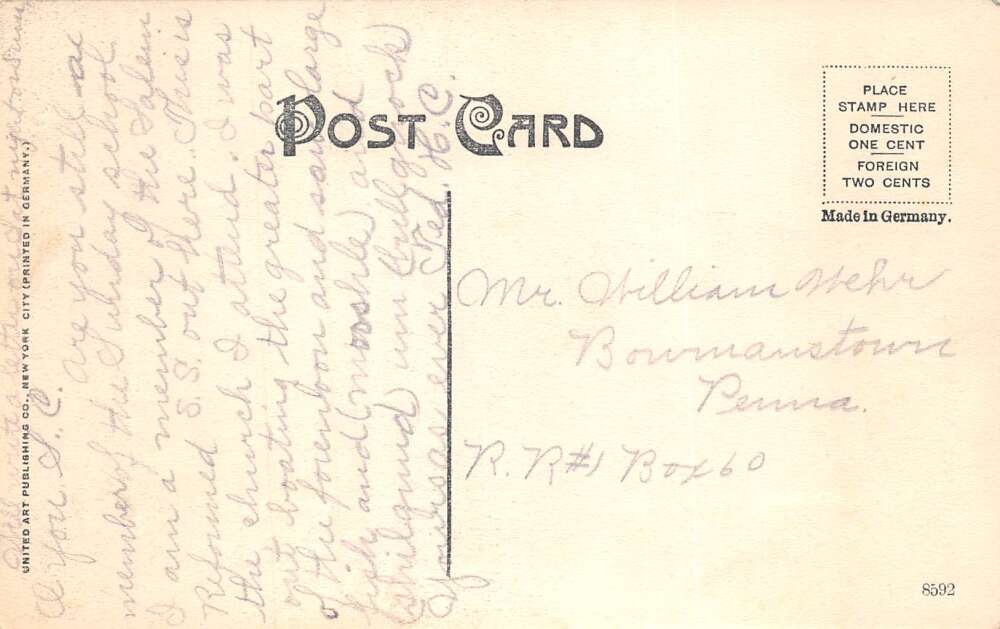 POST CARD
PLACE
STAMP HERE
DOMESTIC
ONE CENT
FOREIGN
TWO CENTS
Made in Germany.
UNITED ART PUBLISHING CO., NEW YORK CITY (PRINTED IN GERMANY.)
Are you still a
member of the Sunday school
I am a member of the Salem
Reformed S. S. out there. This is
the church I attend. I was
out boating the greater part
of the forenoon and saw large
fish and
and
Yours as ever Fred. H. C.
Mr. William Wehr
Bowmanstown
Penna.
R. R #1 Box 60
8592